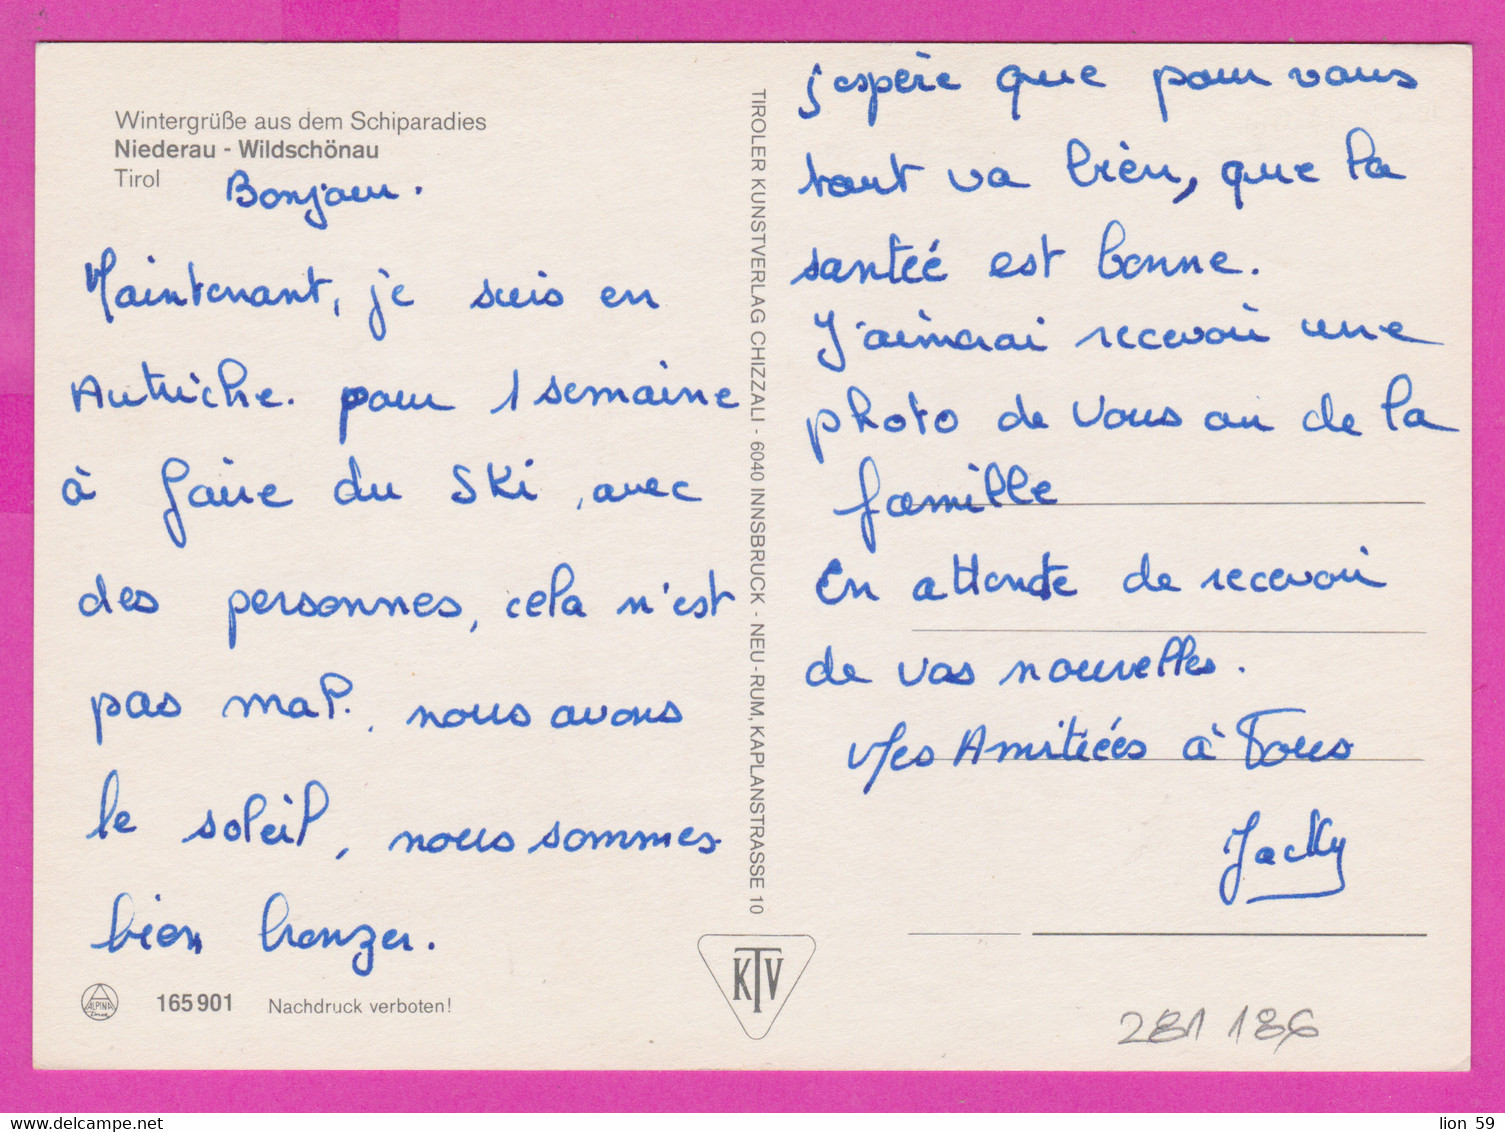 Wintergrüße aus dem Schiparadies
Niederau - Wildschönau
Tirol
Bonjour.
Maintenant, je suis en
Autriche. pour 1 semaine
à faire du Ski, avec
des personnes, cela n'est
pas mal., nous avons
le soleil, nous sommes
bien bronzer.
ALPINA
165901 Nachdruck verboten!
TIROLER KUNSTVERLAG CHIZZALI - 6040 INNSBRUCK - NEU-RUM, KAPLANSTRASSE 10
KTV
j'espère que pour vous
tout va bien, que la
santée est bonne.
J'aimerai recevoir une
photo de vous ou de la
famille
En attente de recevoir
de vos nouvelles.
Mes Amitiées à Tous
Jacky
281 186
lion 59